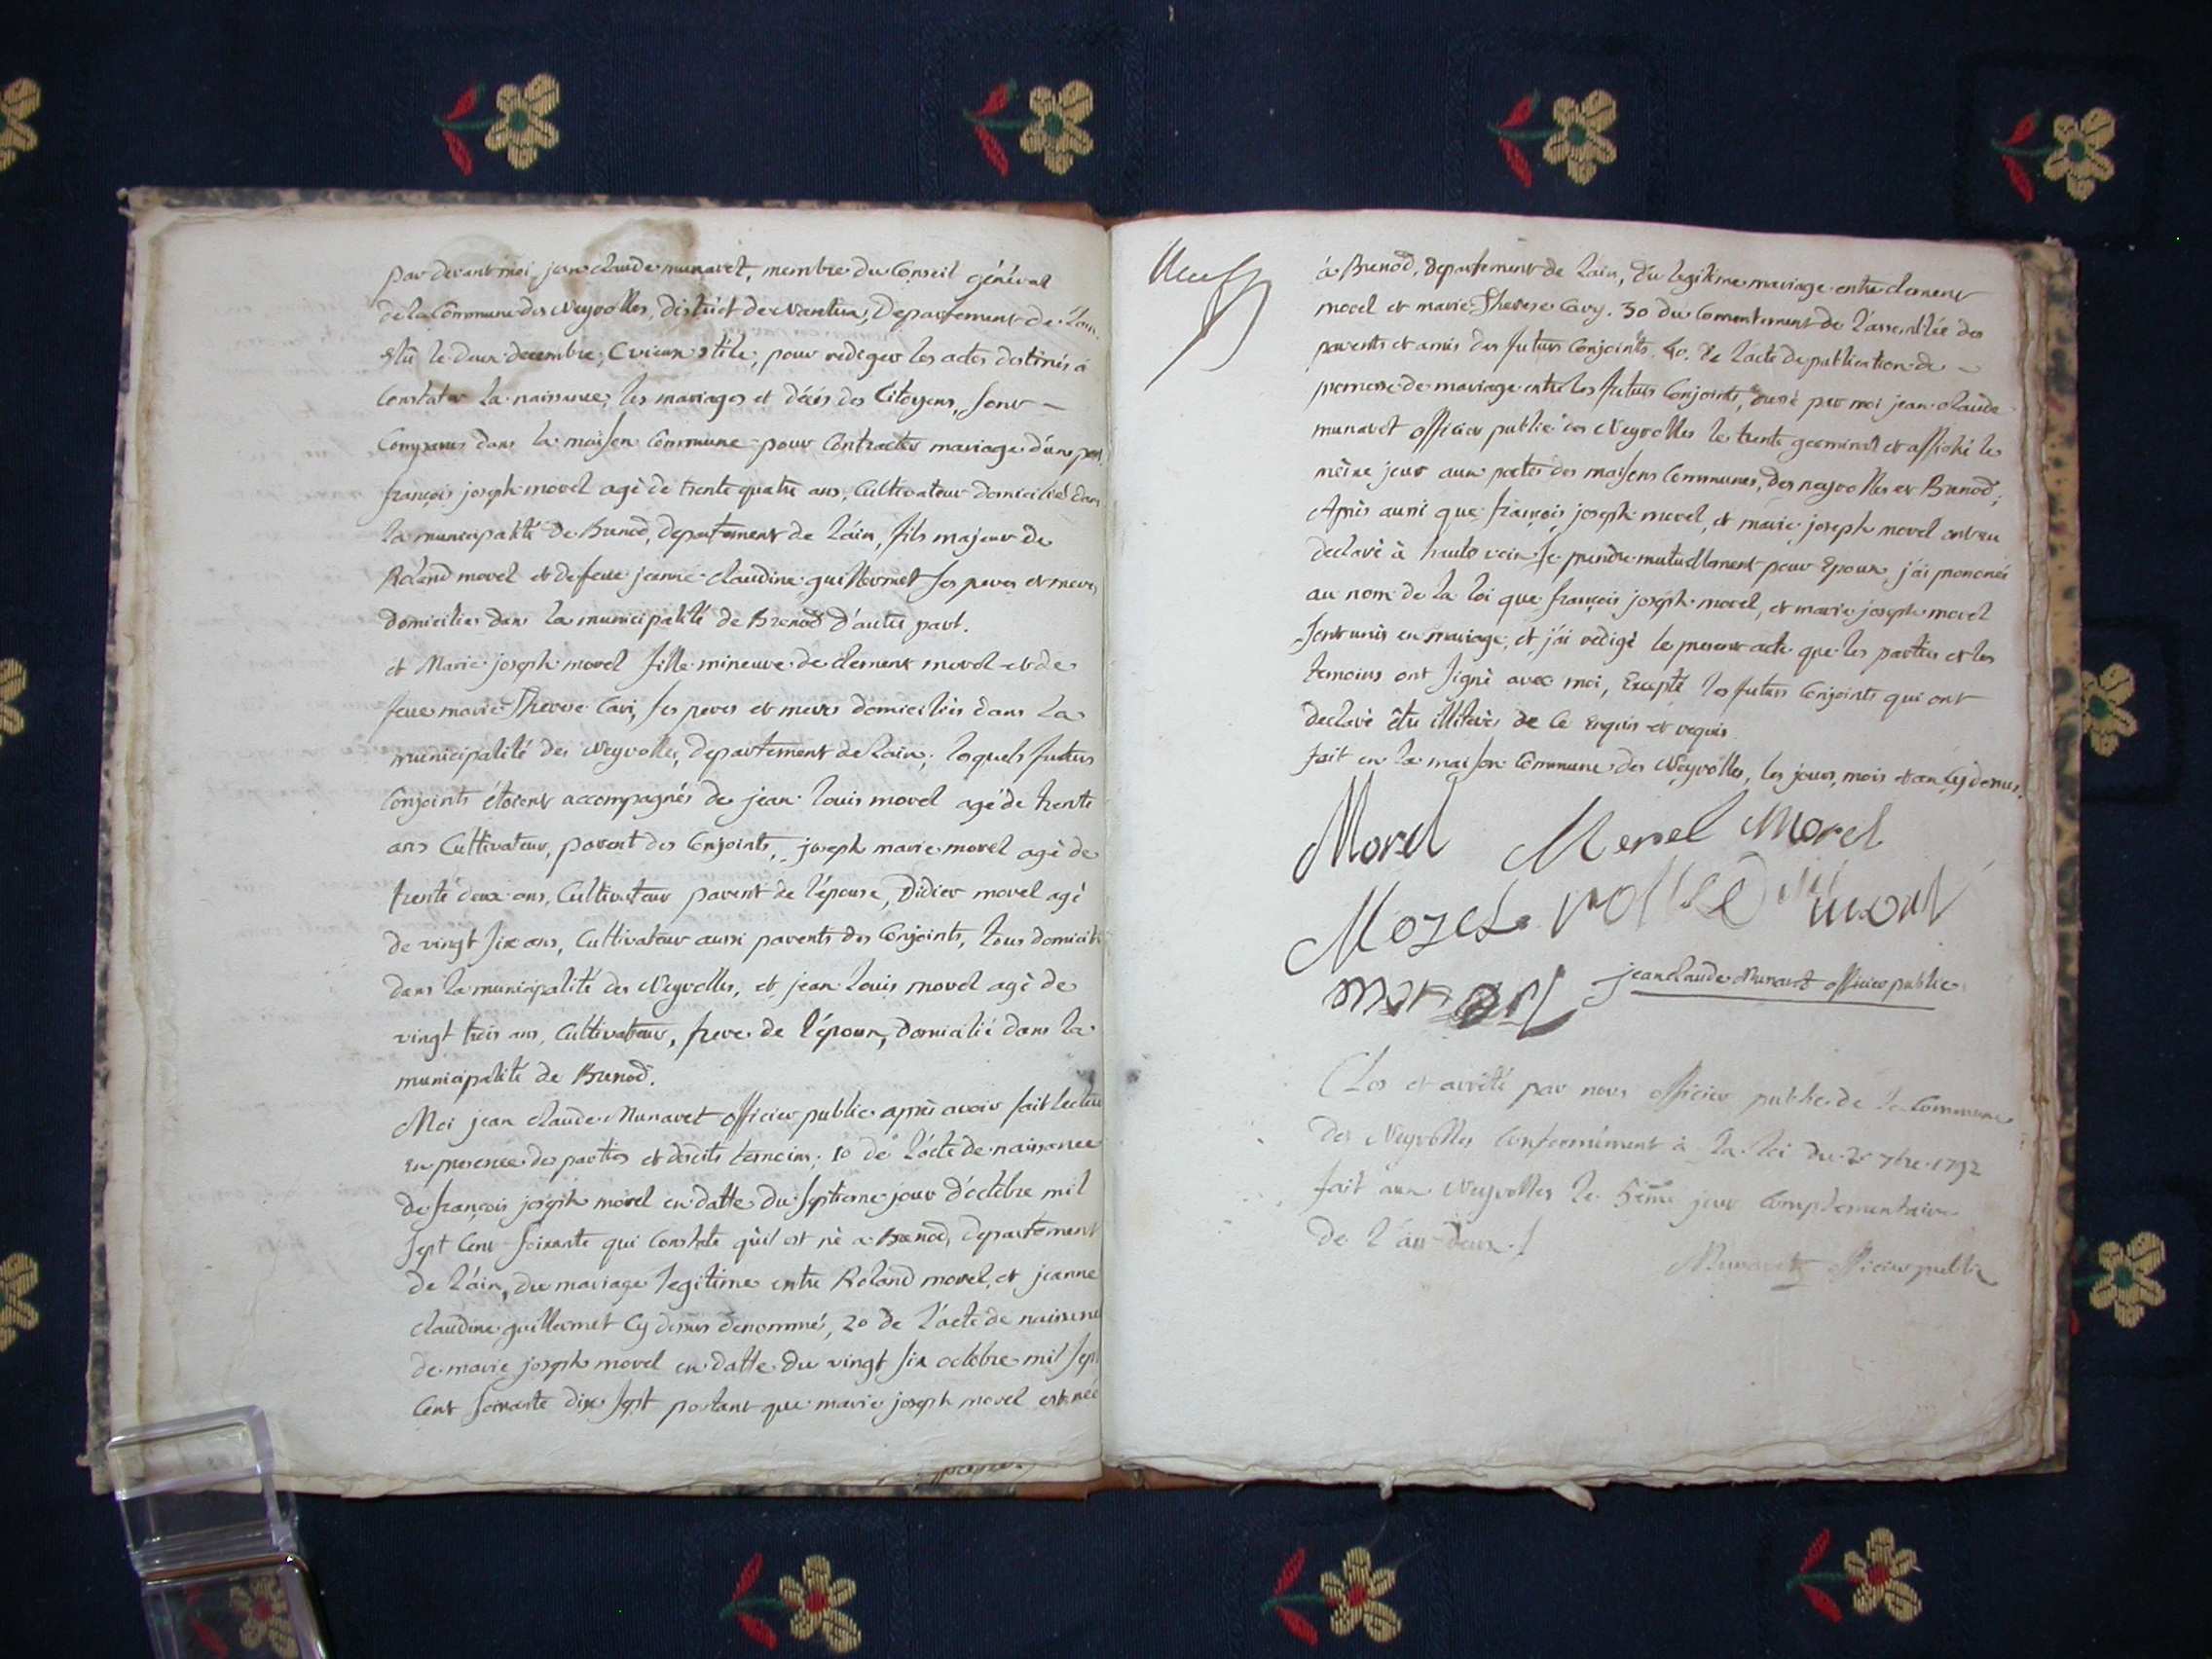 par devant moi jean claude munaret, membre du Conseil général
de la Commune des Neyrolles, district de Nantua, Departement de Lain
élû le deux decembre, (vieux stile, pour rediger les actes destinés à
Constater la naissance, les mariages et décés des Citoyens, sont
Comparus dans la maison Commune pour Contracter mariage d'une part
françois joseph morel agé de trente quatre ans, Cultivateur domicilié dans
la municipalité de Brenod, departement de Lain, fils majeur de
Roland morel et de feue jeanne claudine guillermet ses peres et meres
domiciliés dans la municipalité de Brenod d'autre part.
et Marie joseph morel fille mineure de clement morel et de
feue marie Therese Cavi, ses peres et meres domiciliés dans la
municipalité des Neyrolles, departement de Lain; lesquels futurs
Conjoints étoient accompagnés de jean Louis morel agé de trente
ans Cultivateur, parent des Conjoints, joseph marie morel agé de
trente deux ans, Cultivateur parent de l'épouse, Didier morel agé
de vingt six ans, Cultivateur aussi parents des Conjoints, tous domicili
dans la municipalité des Neyrolles, et jean Louis morel agé de
vingt trois ans, Cultivateur, frere de l'époux, domicilié dans la
municipalité de Brenod.
Moi jean claude Munaret officier public après avoir fait lecture
en presence des parties et desdits temoins; 1o de l'acte de naissance
de françois joseph morel en datte du septieme jour d'octobre mil
sept Cent soixante qui Constate qu'il est né a Brenod, departement
de l'ain, du mariage legitime entre Roland morel, et jeanne
claudine guillermet Cy dessus denommé, 2o de l'acte de naissance
de marie joseph morel en datte du vingt six octobre mil sept
Cent soixante dix sept portant que marie joseph morel est née
à Brenod, departement de Lain, du legitime mariage entre clement
morel et marie Therese Cavy. 3o du Consentement de l'assemblée des
parents et amis des futurs Conjoints. 4o. de l'acte de publication de
promesse de mariage entre les futurs Conjoints, dressé par moi jean claude
munaret officier public des Neyrolles le trente germinal et affiché le
même jour aux portes des maisons Communes, des neyrolles et Brenod;
Après aussi que françois joseph morel, et marie joseph morel ont eu
declaré à haute voix se prendre mutuellement pour Epoux, j'ai prononcé
au nom de la loi que françois joseph morel, et marie joseph morel
sont unis en mariage, et j'ai redigé le present acte que les parties et les
temoins ont signé avec moi, Excepté les futurs Conjoints qui ont
declaré être illiterés de Ce enquis et requis
fait en la maison Commune des Neyrolles, les jours, mois et an Cy dessus.
Morel Morel Morel
Morel
jean claude Munaret officier public
Clos et arrêté par nous officier public de la Commune
des Neyrolles Conformément à la loi du 20 7bre 1792
fait aux Neyrolles le 5ème jour Complementaire
de l'an deux
Munaret officier public